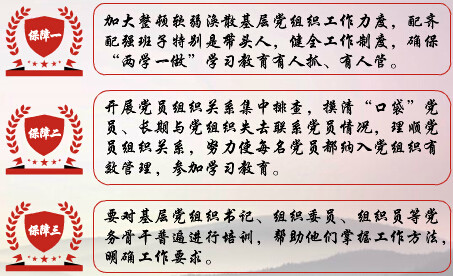 保障一
加大整顿软弱涣散基层党组织工作力度，配齐
配强班子特别是带头人，健全工作制度，确保
“两学一做”学习教育有人抓、有人管。
保障二
开展党员组织关系集中排查，摸清“口袋”党
员、长期与党组织失去联系党员情况，理顺党
员组织关系，努力使每名党员都纳入党组织有
效管理，参加学习教育。
保障三
要对基层党组织书记、组织委员、组织员等党
务骨干普遍进行培训，帮助他们掌握工作方法，
明确工作要求。